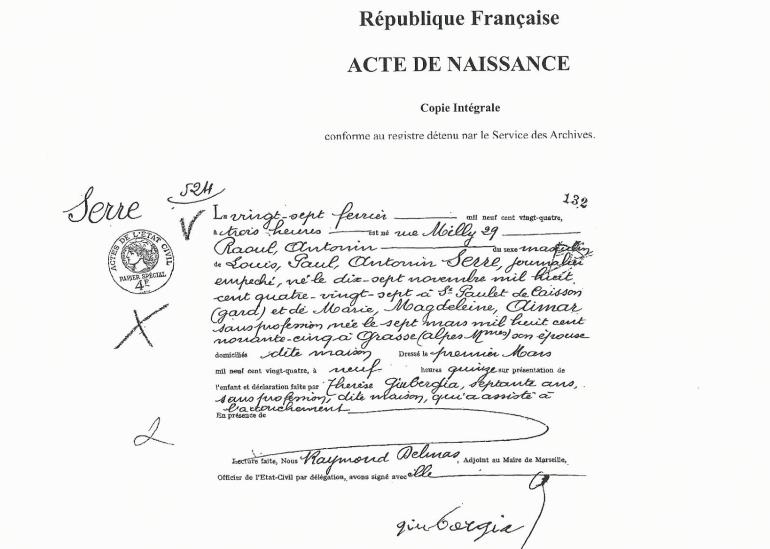 République Française
ACTE DE NAISSANCE
Copie Intégrale
conforme au registre détenu par le Service des Archives.
524
132
Serre
Le vingt-sept février mil neuf cent vingt-quatre,
à trois heures est né rue Milly 29
Raoul, Antonin du sexe masculin
de Louis, Paul, Antonin Serre, journalier
empeché, né le dix-sept novembre mil huit
cent quatre-vingt-sept à St Paulet de Caisson
(gard) et de Marie, Magdeleine, Aimar
sans profession née le sept mars mil huit cent
nonante-cinq à Grasse (alpes Mmes) son épouse
domiciliés dite maison Dressé le premier Mars
mil neuf cent vingt-quatre, à neuf heures quinze sur présentation de
l'enfant et déclaration faite par Thérèse Giubergia, septante ans,
sans profession, dite maison, qui a assisté à
l'accouchement
En présence de
Lecture faite, Nous Raymond Delmas, Adjoint au Maire de Marseille,
Officier de l'Etat-Civil par délégation, avons signé avec elle
giubergia
ACTES DE L'ÉTAT CIVIL
PAPIER SPÉCIAL
4F
2